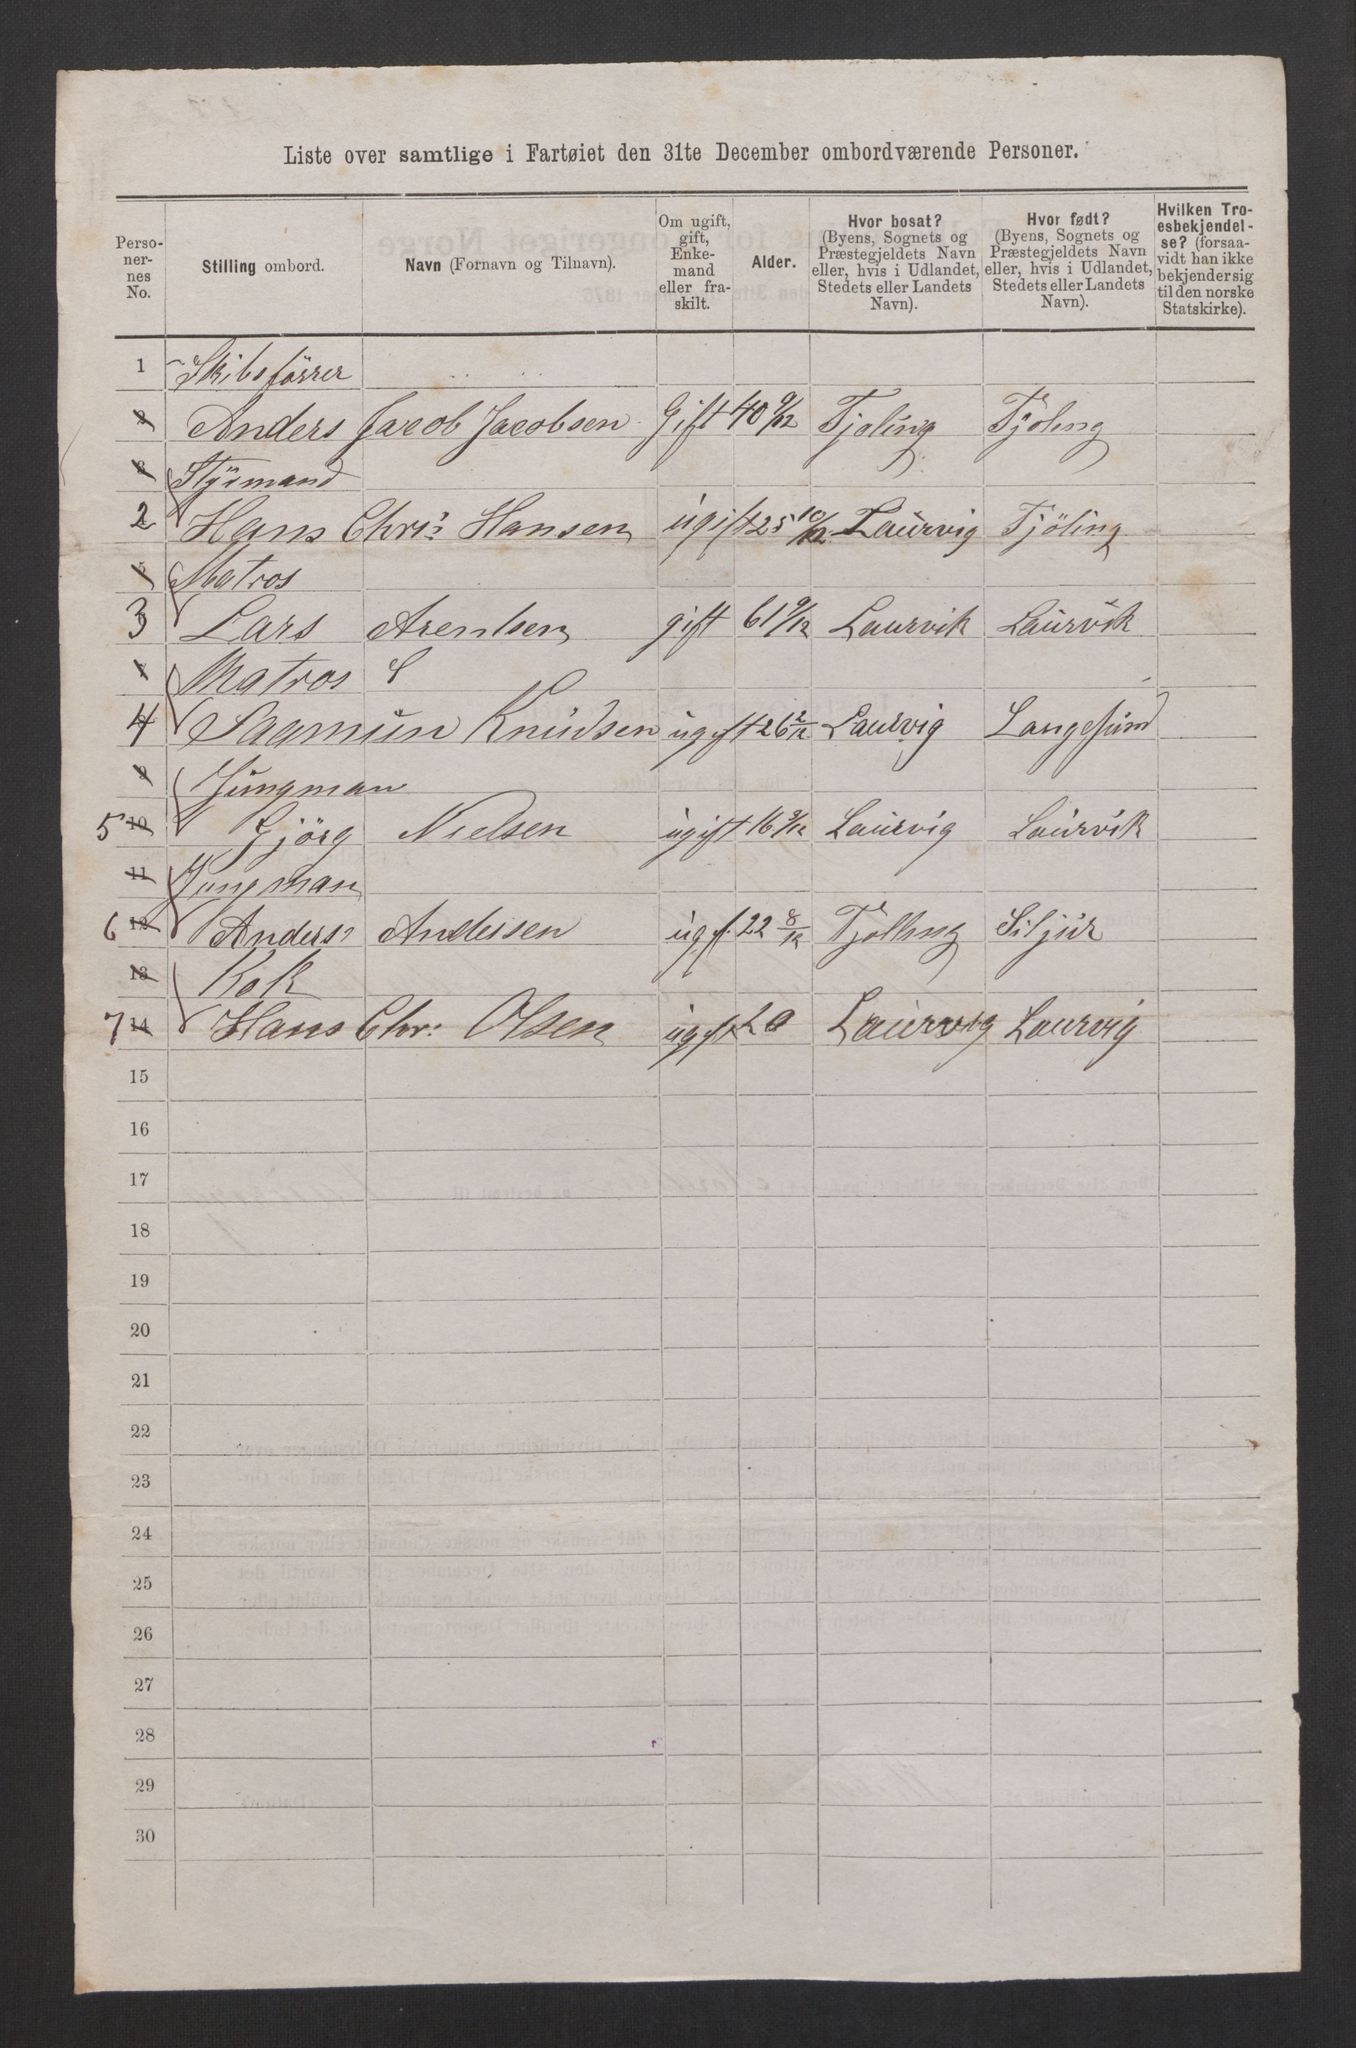 Liste over samtlige i Fartøiet den 31te December ombordværende Personer.
Perso-
ner-
nes
No.
Stilling ombord.
Navn (Fornavn og Tilnavn).
Om ugift,
gift,
Enke-
mand
eller fra-
skilt.
Alder.
Hvor bosat?
(Byens, Sognets og
Præstegjeldets Navn
eller, hvis i Udlandet,
Stedets eller Landets
Navn).
Hvor født?
(Byens, Sognets og
Præstegjeldets Navn
eller, hvis i Udlandet,
Stedets eller Landets
Navn).
Hvilken Tro-
esbekjendel-
se? (forsaa-
vidt han ikke
bekjender sig
til den norske
Statskirke).
1 Skibsförrer
2 Anders Jacob Jacobsen Gift 40 9/12 Tjoling Tjöling
3 Styrmand
2 Hans Chris Hansen ugift 25 10/12 Laurvig Tjöling
5 Matros
3 Lars Arentsen gift 61 9/12 Laurvik Laurvik
7 Matros
4 Sagmun Knudsen ugift 26 2/12 Laurvig Langesund
9 Jungman
5 10 Nielsen ugift 16 9/12 Laurvig Laurvik
11 Jungman
6 12 Anders Andersen ugf. 22 8/12 Tjölling Siljur
13 Kok
7 14 Hans Chr: Olsen ugift 20 Laurvig Laurvig
15
16
17
18
19
20
21
22
23
24
25
26
27
28
29
30